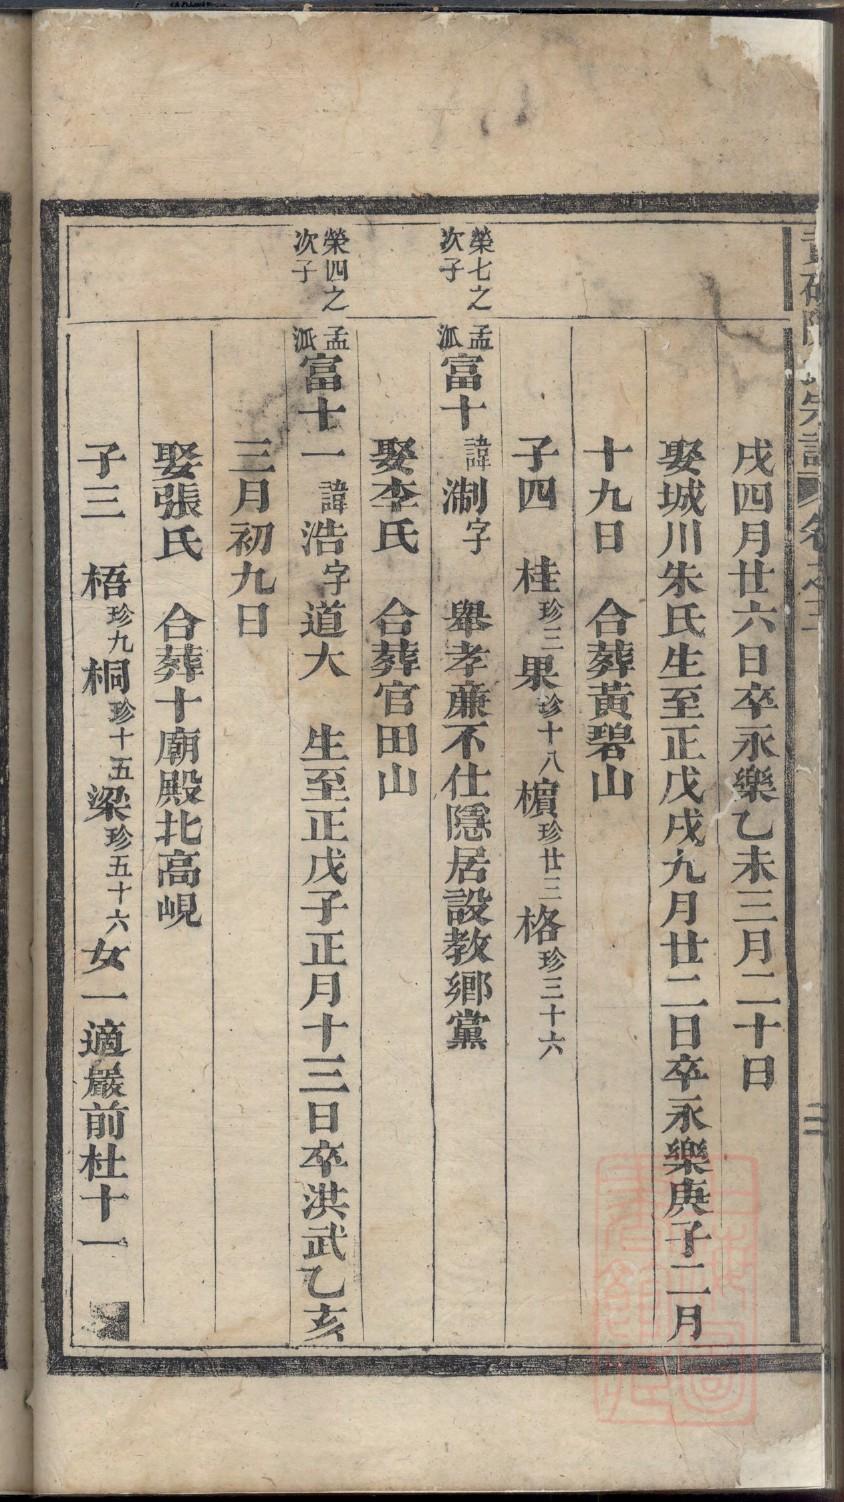 宗譜 卷之三
二
戌四月廿六日卒永樂乙未三月二十日
娶城川朱氏生至正戊戌九月廿二日卒永樂庚子二月
十九日 合葬黃碧山
子四 桂珍三 果珍十八 檳珍廿三 格珍三十六
榮七之次子
孟派富十 諱淛字 舉孝廉不仕隱居設教鄉黨
娶李氏 合葬官田山
榮四之次子
孟派富十一 諱浩字道大 生至正戊子正月十三日卒洪武乙亥
三月初九日
娶張氏 合葬十廟殿北高峴
子三 梧珍九 桐珍十五 梁珍五十六 女一適嚴前杜十一